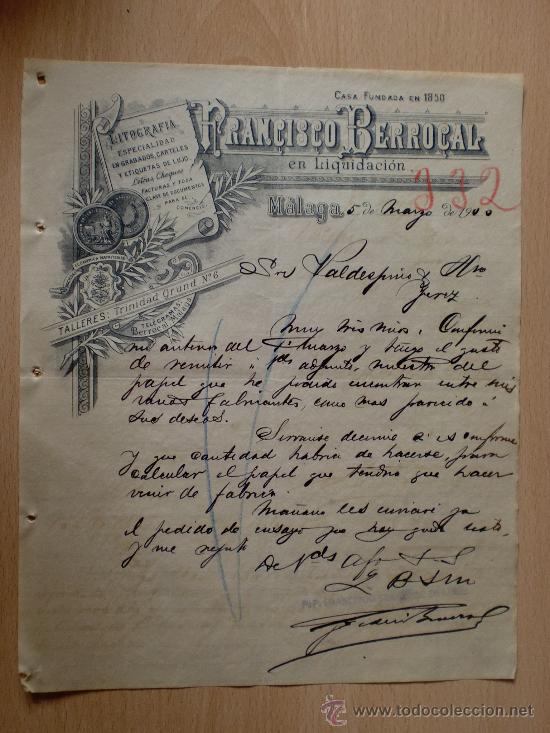 CASA FUNDADA EN 1850
FRANCISCO BERROCAL
en Liquidación
LITOGRAFIA
ESPECIALIDAD
EN GRABADOS, CARTELES
Y ETIQUETAS DE LUJO
Letras, Cheques
FACTURAS Y TODA
CLASE DE DOCUMENTOS
PARA EL
COMERCIO
332
Málaga 5 de Marzo de 1900
TALLERES: Trinidad Grund Nº 6
TELEGRAMAS:
Berrocal Málaga
Sres Valdespino y Hno
Jerez
Muy Sres mios: Confirmo
mi anterior del 1º Marzo y tengo el gusto
de remitir a Vds adjunto, muestra del
papel que he podido encontrar entre mis
varios fabricantes, como mas parecido á
sus deseos.
Sirvanse decirme si es conforme
y que cantidad habria de hacerse para
calcular el papel que tendria que hacer
venir de fabrica.
Mañana les enviaré ya
el pedido de ensayo que hay
y me repito
De Vds Afmo S S
Q B S M
todocoleccion
www.todocoleccion.net